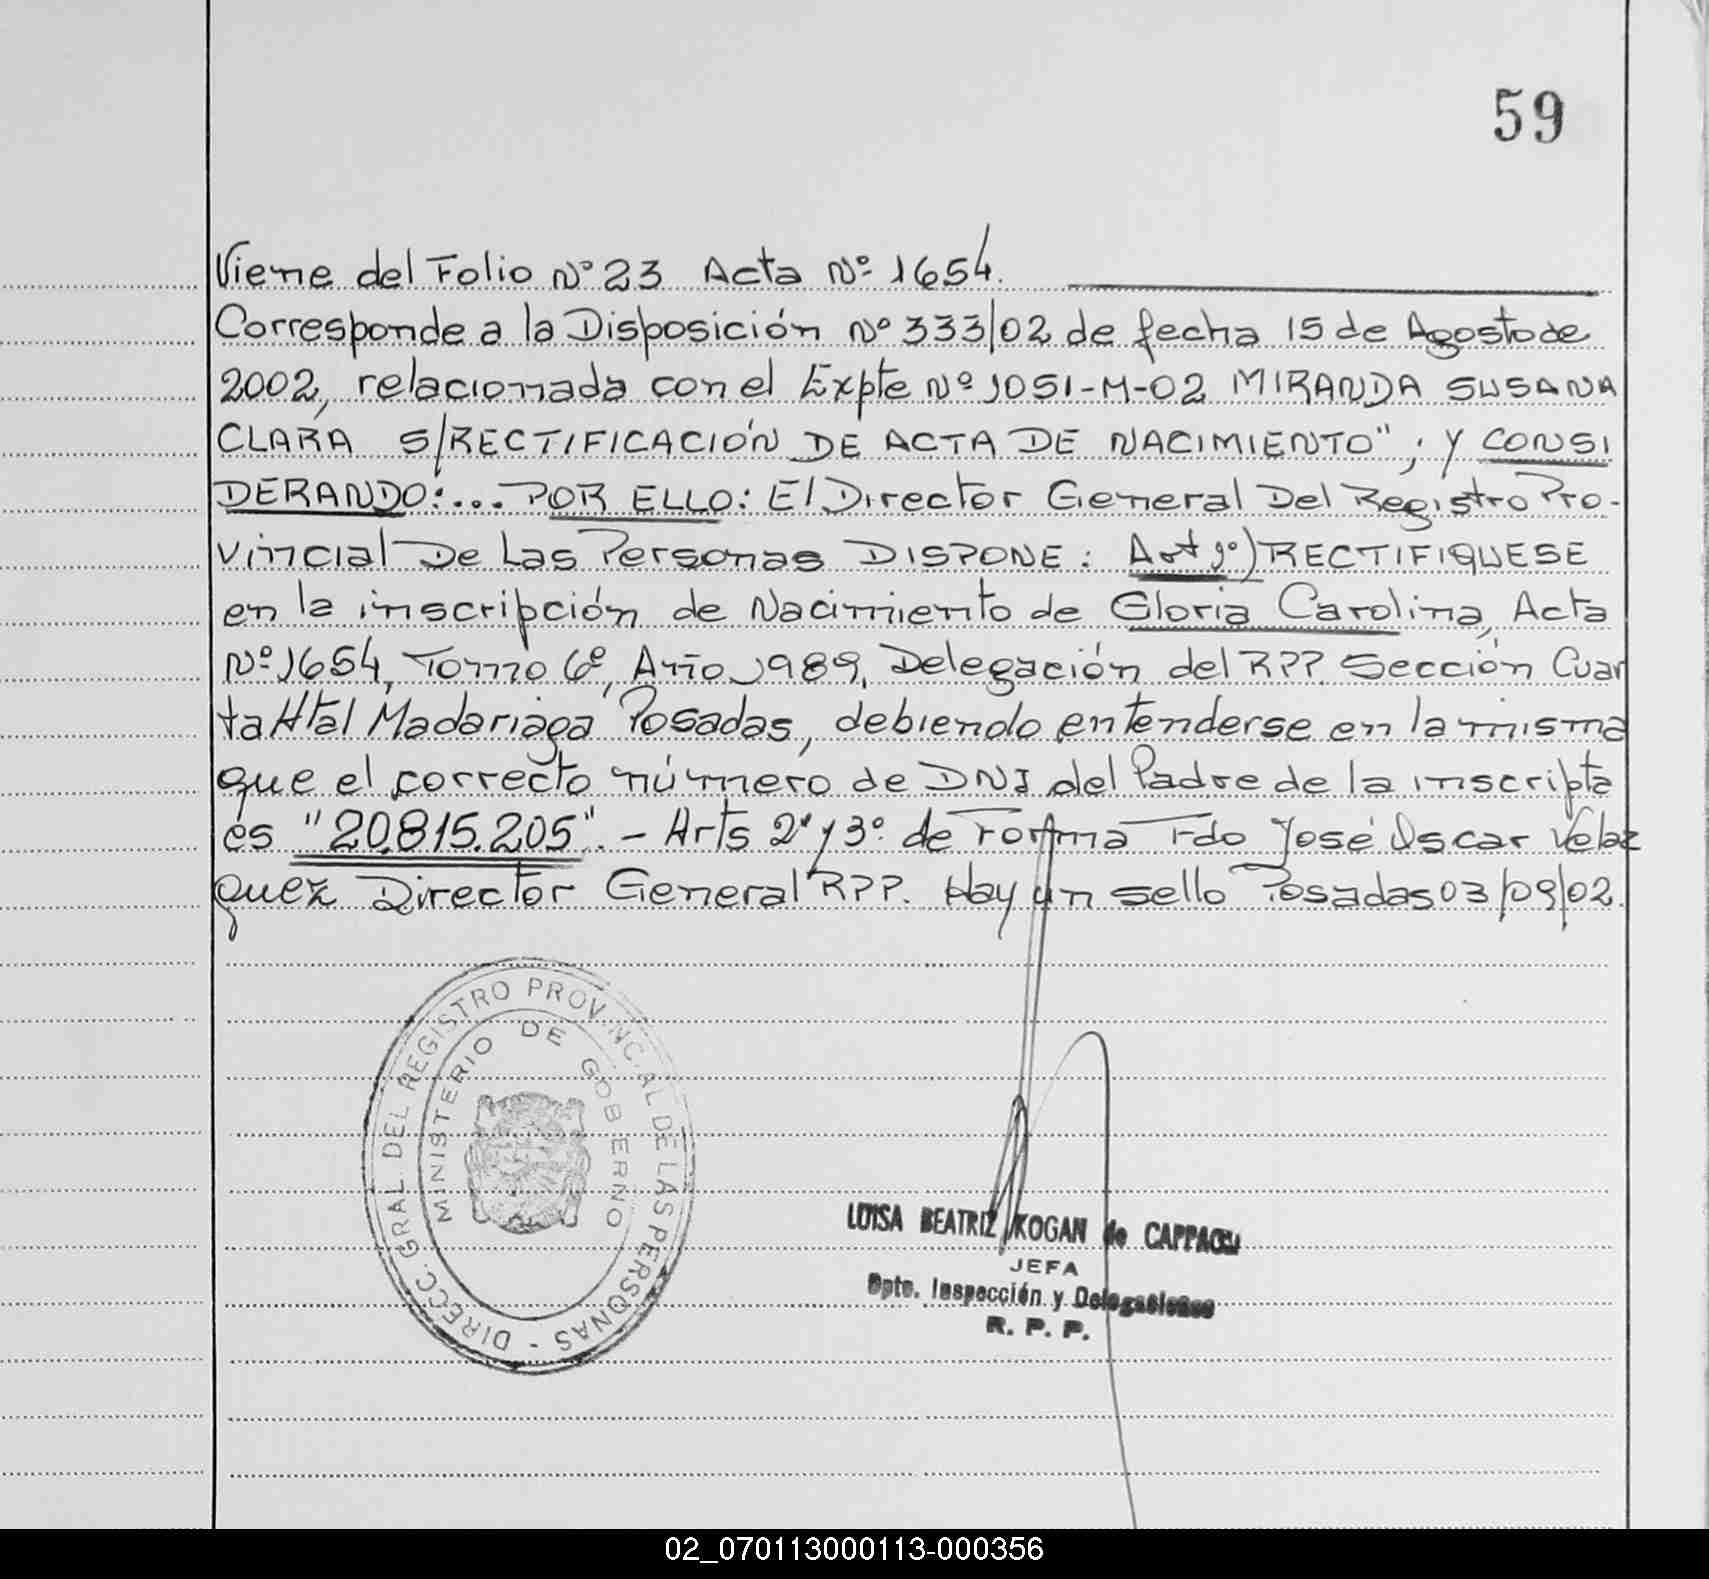 59
Viene del Folio Nº 23 Acta Nº 1654.
Corresponde a la Disposición Nº 333/02 de fecha 15 de Agosto de
2002, relacionada con el Expte Nº 1051-M-02 MIRANDA SUSANA
CLARA S/RECTIFICACIÓN DE ACTA DE NACIMIENTO"; Y CONSI
DERANDO:... POR ELLO: El Director General Del Registro Pro-
vincial De Las Personas DISPONE: Art 1º) RECTIFIQUESE
en la inscripción de Nacimiento de Gloria Carolina, Acta
Nº 1654, Tomo 6º, Año 1989, Delegación del RPP. Sección Cuar
ta Htal Madariaga Posadas, debiendo entenderse en la misma
que el correcto número de DNI del Padre de la inscripta
és "20.815.205". - Arts 2º y 3º de Forma Fdo José Oscar Velaz
quez Director General RPP. Hay un sello Posadas 03/09/02.
DIRECC. GRAL. DEL REGISTRO PROVINCIAL DE LAS PERSONAS -
MINISTERIO DE GOBIERNO
LUISA BEATRIZ KOGAN de
JEFA
Dpto. Inspección y Delegaciones
R. P. P.
02_070113000113-000356